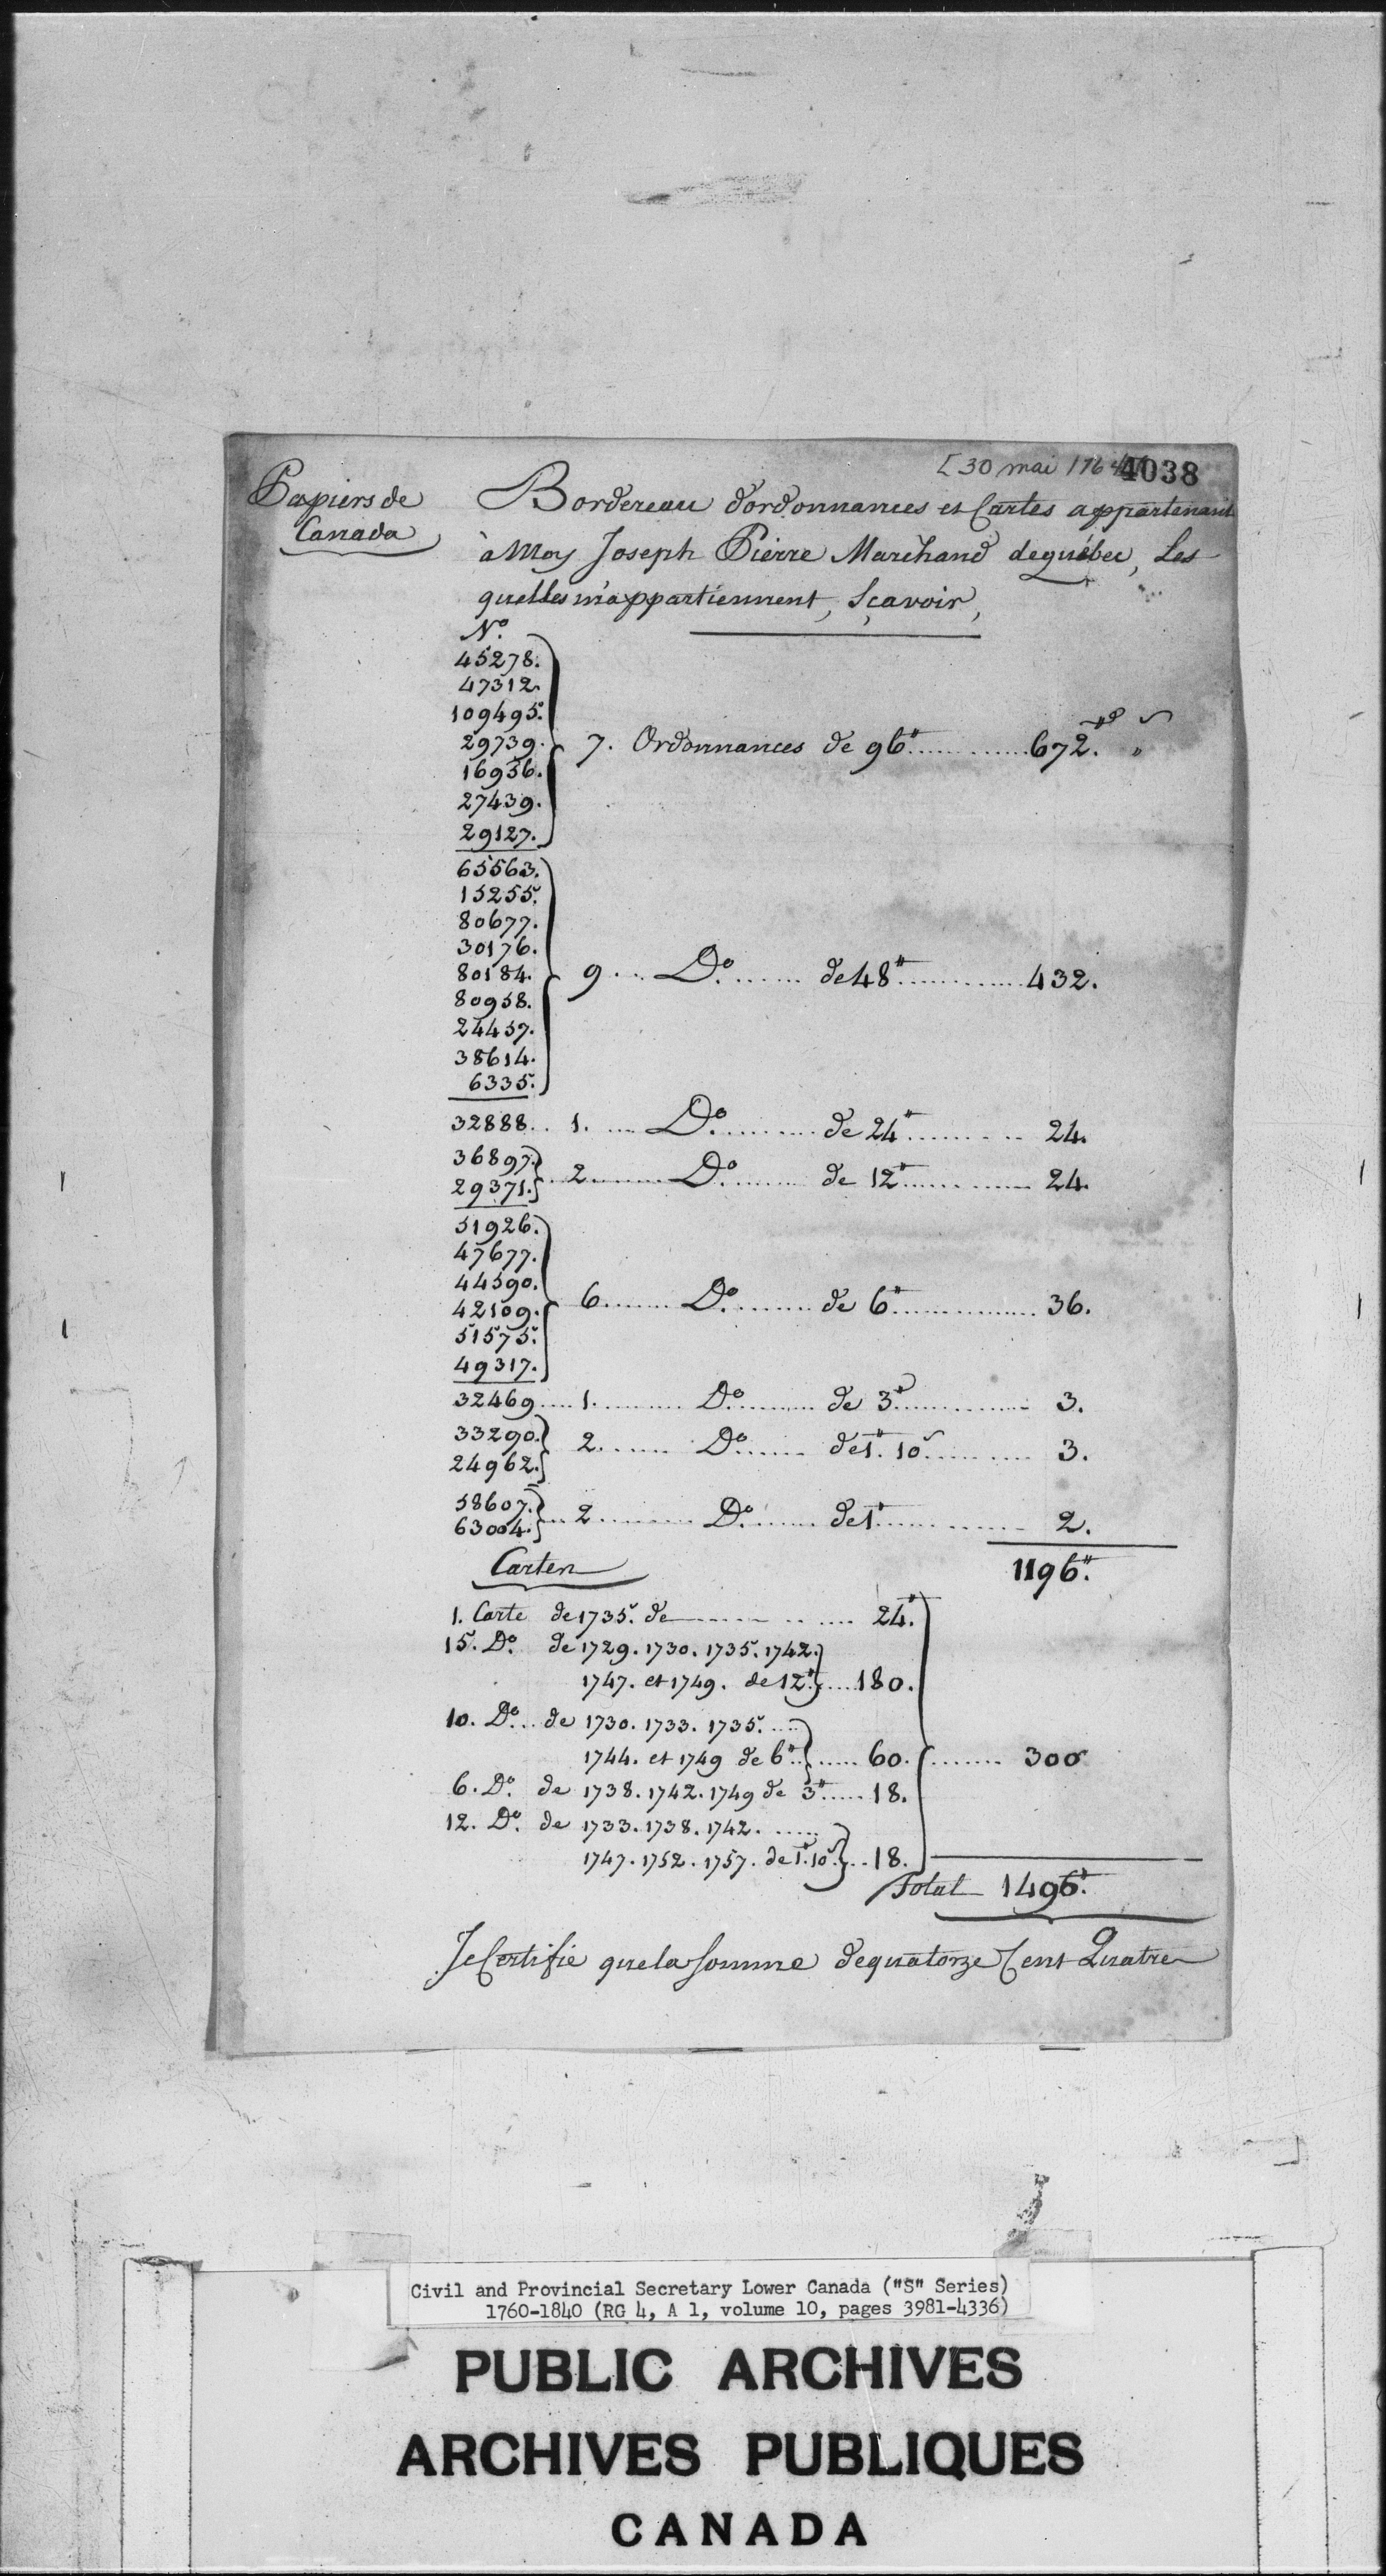 [30 mai 1764] 4038
Papiers de
Canada
Bordereau d'ordonnances et Cartes appartenant
à Moy Joseph Pierre Marchand de québec, Les
quelles m'appartiennent, Sçavoir,
No.
45278.
47312.
109495.
29739. 7. Ordonnances de 96# ............ 672.# "s
16936.
27439.
29127.
65563.
15255.
80677.
30176.
80184. 9 ... Do. ...... de 48# ............ 432.
80958.
24457.
38614.
6335.
32888. .. 1. .... Do. ........ de 24# ......... 24.
36897.
29371. .. 2. ........ Do. ........ de 12# ............ 24.
51926.
47677.
44590.
42109. 6. ....... Do. ........ de 6# ............ 36.
51575.
49317.
32469 .... 1. ......... Do. ........ de 3# ............ 3.
33290. 2. ...... Do. ...... de 1#. 10s ......... 3.
24962.
58607.
63004. ... 2. ........ Do. ....... de 1# ............ 2.
Cartes 1196#.
1. Carte de 1735. de ......... 24.#
15. Do. de 1729. 1730. 1735. 1742.
1747. et 1749. de 12# .... 180.
10. Do. .. de 1730. 1733. 1735. ....
1744. et 1749 de 6# ..... 60. ....... 300
6. Do. de 1738. 1742. 1749 de 3# ..... 18.
12. Do. de 1733. 1738. 1742. ......
1747. 1752. 1757. de 1#. 10s ... 18.
Total 1496#.
Je Certifie que la Somme de quatorze Cent Quatre
Civil and Provincial Secretary Lower Canada ("S" Series)
1760-1840 (RG 4, A 1, volume 10, pages 3981-4336)
PUBLIC ARCHIVES
ARCHIVES PUBLIQUES
CANADA